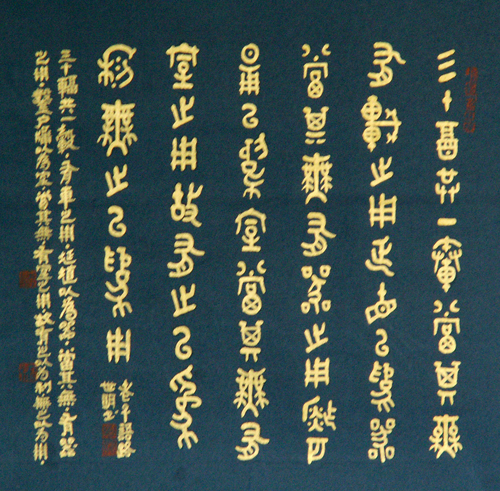 三十輻共一轂當其無
有車之用埏埴以為器
當其無有器之用鑿戶
牖以為室當其無有
室之用故有之以為
利無之以為用
老子語錄
世明書
三十輻共一轂·有車之用·埏埴以為器·當其無·有器
之用·鑿戶牖以為室·當其無·有室之用·故有之以為利無之以為用·